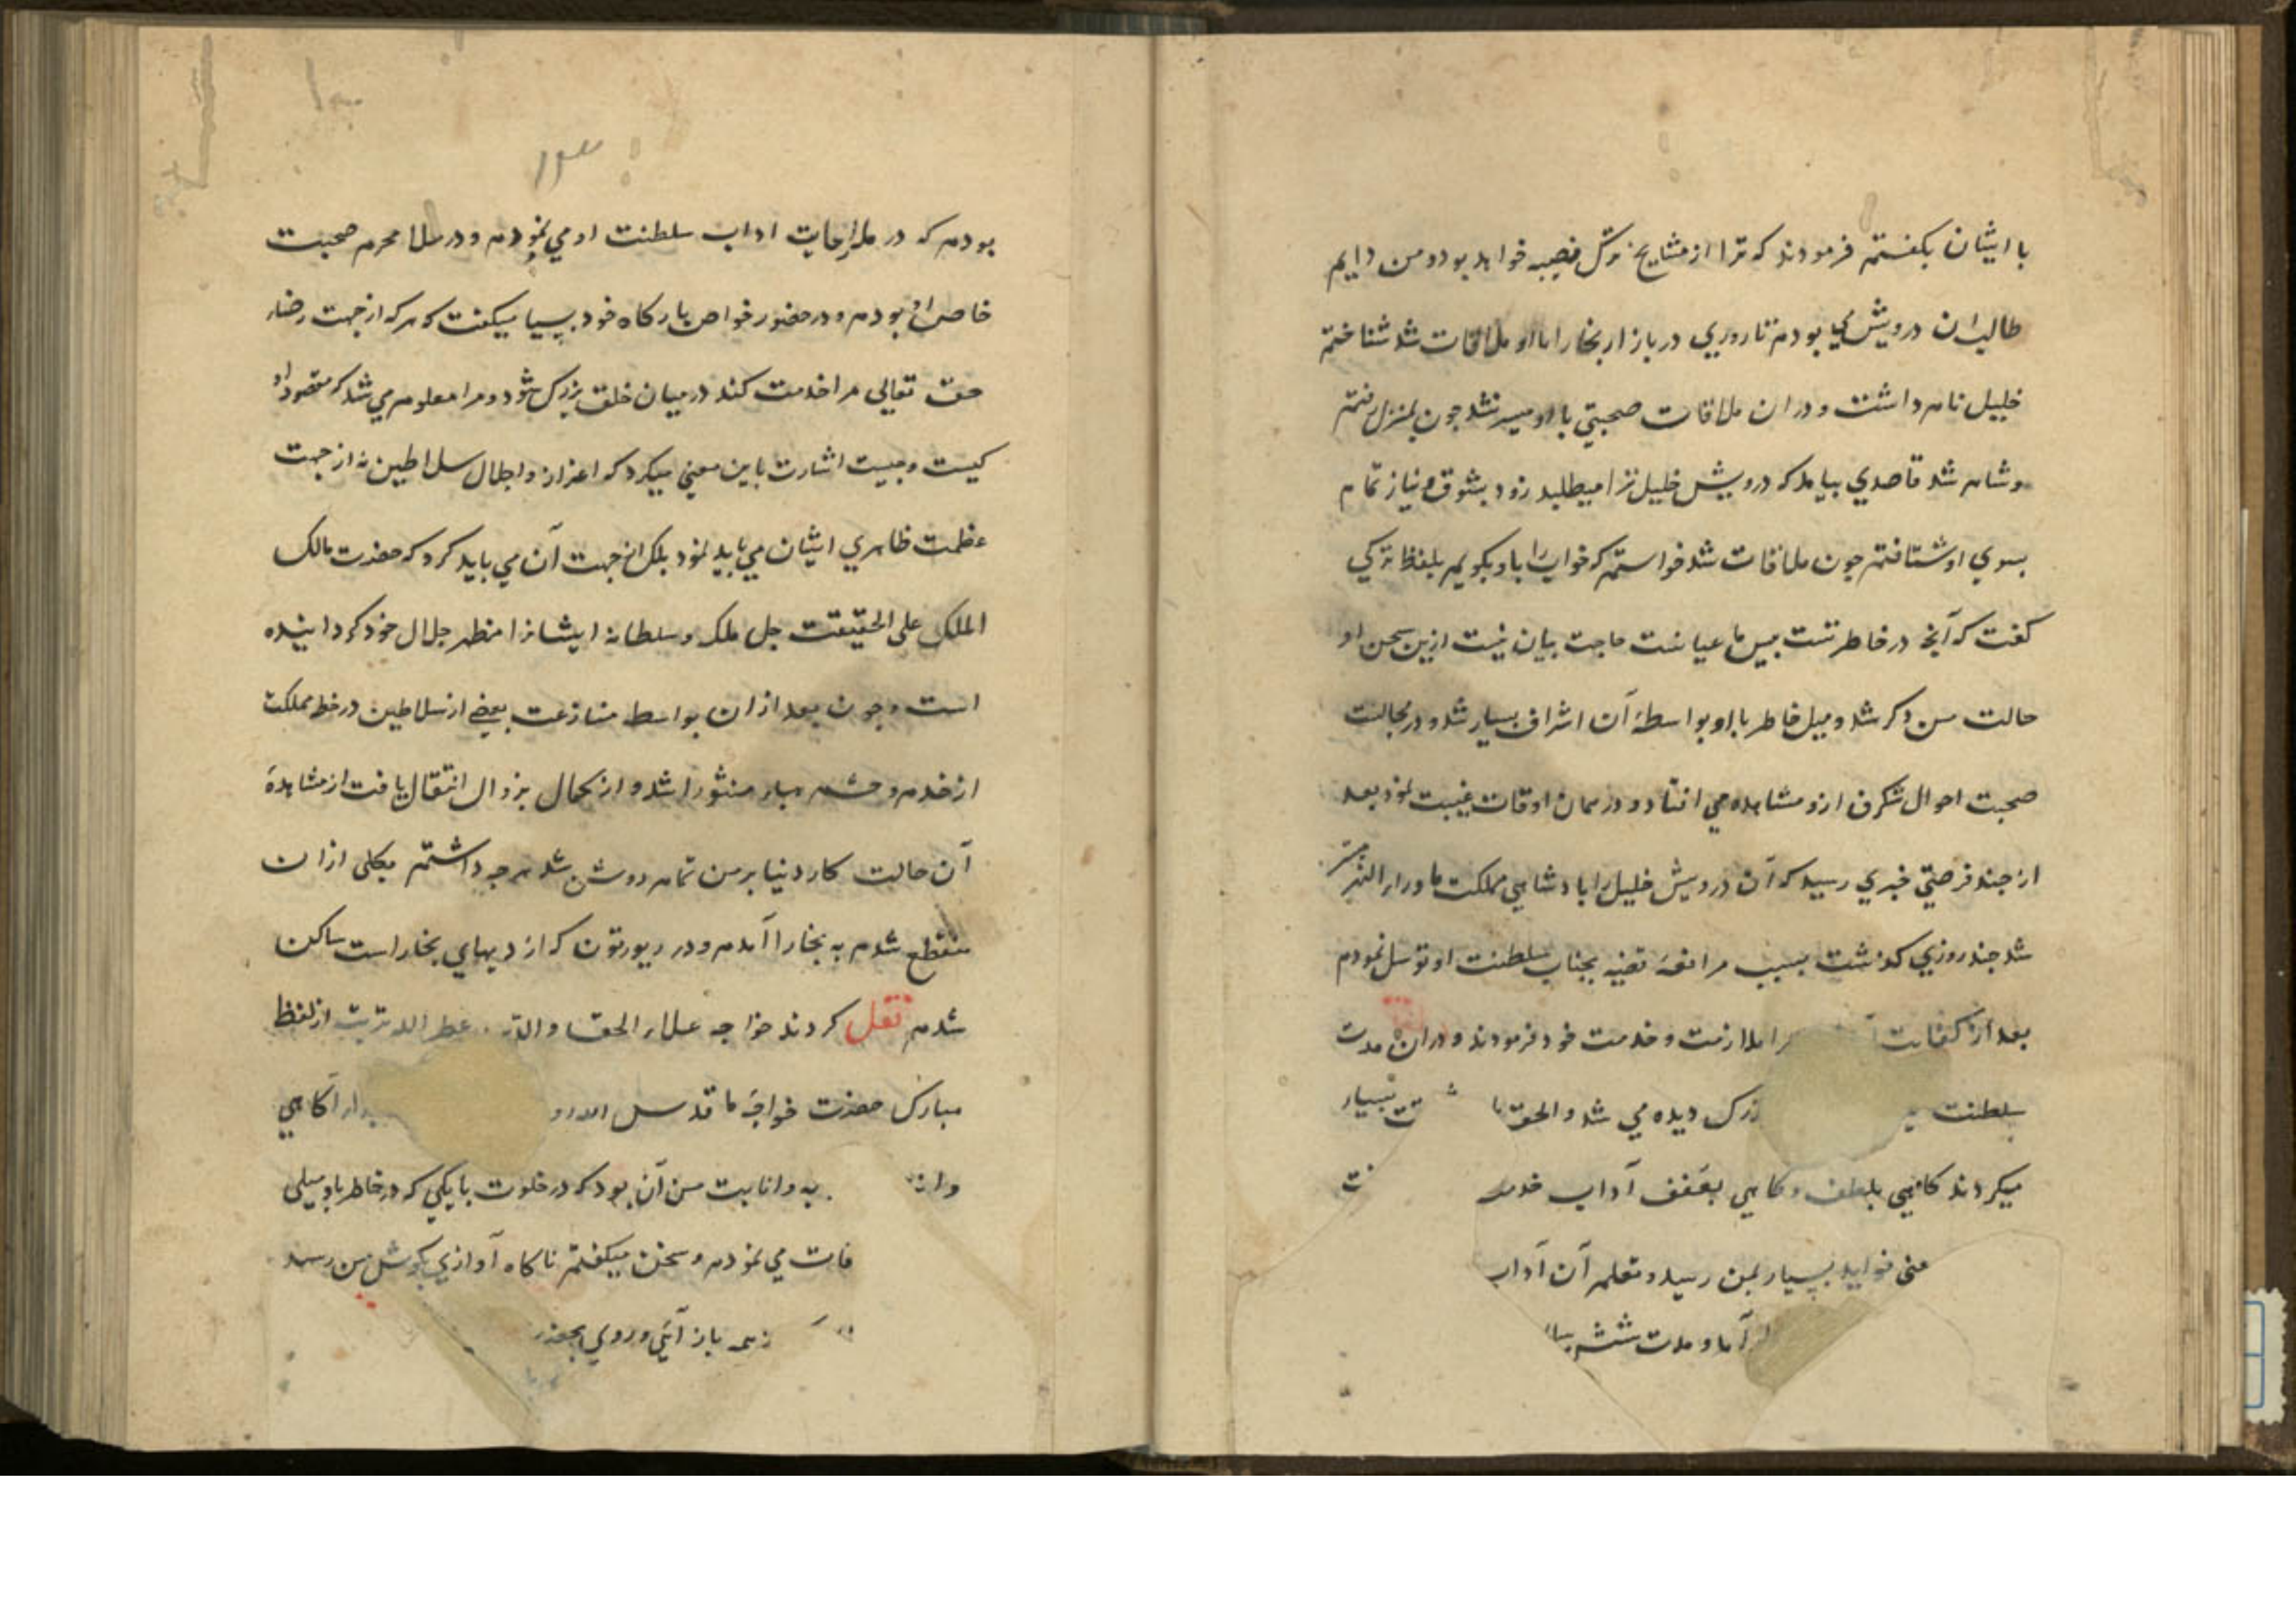 با ایشان بکفتم فرمودند که ترا از مشایخ ترک نصیبه خواهد بود و من دایم
طالب ان درویش می بودم تا روزي در بازار بخارا با او ملاقات شد شناختم
خلیل نام داشت و در ان ملاقات صحبتي با او میسر نشد جون بمنزل رفتم
و شام شد قاصدي بیامد که درویش خلیل ترا میطلبد زود بشوق و نیاز تمام
بسوي او شتافتم جون ملاقات شد خواستم که خواب را با او بکویم بلفظ ترکي
کفت که آنچه در خاطر تست بیش ما عیانست حاجت بیان نیست ازین سخن او
حالت من دکر شد و میل خاطر با او بواسطهٔ آن اشراف بسیار شد و در مجالست
صحبت احوال شکرف ازو مشاهده مي افتاد و در همان اوقات غیبت نمود بعد
از جند فرصتي خبري رسید که آن درویش خلیل را بادشاهي مملکت ماوراء النهر میسر
شد جند روزي کذشت بسبب مرافعهٔ قضیه بجناب سلطنت او توسل نمودم
بعد از کفایت مرا ملازمت و خدمت خود فرمودند و دران مدت
سلطنت بزرک دیده مي شد و الحق با شفقت بسیار
میکردند کاهي بلطف و کاهي بعنف آداب خدمت
معنی فواید بسیار بمن رسید و تعلم آن آداب
آمد و مدت شش سال
۱۳
بودم که در ملا رعایت اداب سلطنت او مي نمودم و در خلا محرم صحبت
خاص او بودم و در حضور خواص بارکاه خود بسیار میکفت که هر که از جهت رضاء
حق تعالی مرا خدمت کند در میان خلق بزرک شود و مرا معلوم مي شد که مقصود او
کیست و جیست اشارت باین معني میکرد که اعزاز و اجلال سلاطین نه از جهت
عظمت ظاهري ایشان مي باید نمود بلکه از جهت آن مي باید کرد که حضرت مالک
الملک علی الحقیقت جل ملکه و سلطانه ایشانرا مظهر جلال خود کردانیده
است و جون بعد از ان بواسطه منازعت بعضي از سلاطین در خطه مملکت
از خدم و حشم هباء منثورا شد و از کمال بزوال انتقال یافت از مشاهدهٔ
آن حالت کار دنیا بر من تمام روشن شد هر جه داشتم بکلی ازان
منقطع شدم به بخارا آمدم و در ریورتون که از دیهاي بخاراست ساکن
شدم نقل کردند خواجه علاء الحق و الدین عطر الله تربته از لفظ
مبارک حضرت خواجهٔ ما قدس الله آکاهي
به و انابت من آن بود که در خلوت با یکي که در خاطر باو میلی
فات مي نمودم و سخن میکفتم ناکاه آوازي بکوش من رسید
همه باز آئي و روي بحضرت